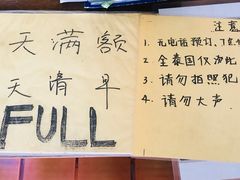 天满额
天清早
FULL
注意
1. 无电话预订、
2. 全泰国仅此
3. 请勿拍照犯
4. 请勿大声